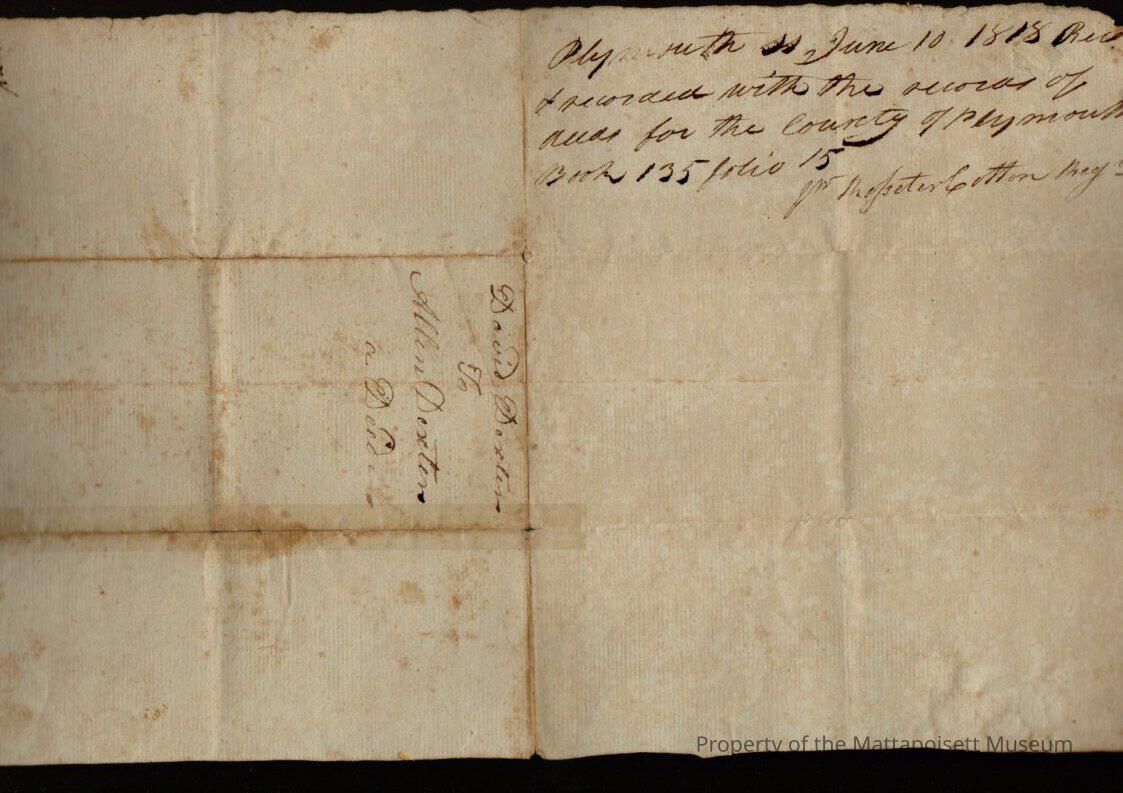 Plymouth ss June 10 1818 Recd
& recorded with the records of
deeds for the County of Plymouth
Book 135 folio 15
pr Rosseter Cotton Regr
David Dexter
To
Allen Dexter
a Deed
Property of the Mattapoisett Museum